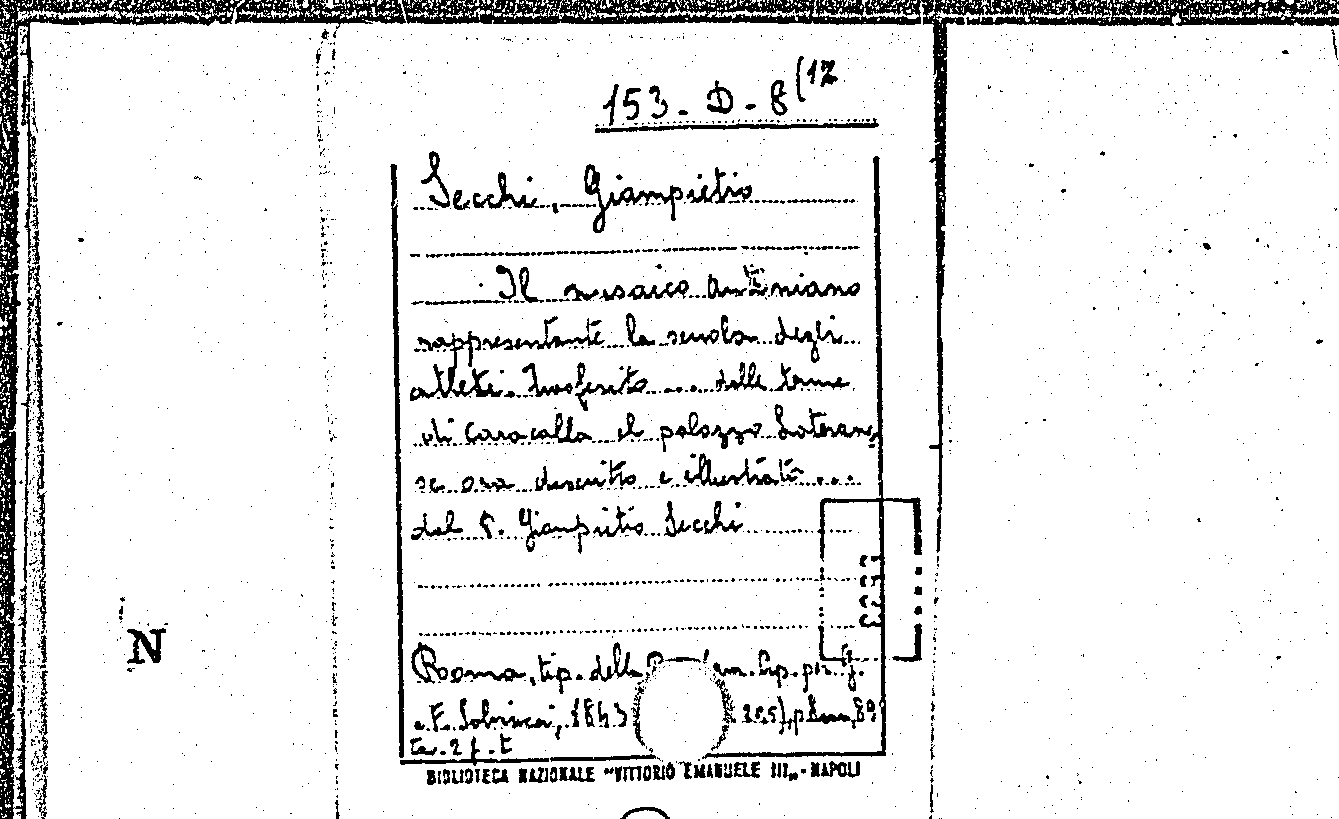 153. D. 8(12
Secchi, Giampietro
Il musaico Antoniniano
rappresentante la scuola degli
atleti. Trasferito ... dalle terme
di Caracalla al palazzo Lateranen
se ora descritto e illustrato ...
dal P. Giampietro Secchi
N
Roma, tip. della Cam. Ap. per G.
e F. Salviucci, 1843
ta. 2 f. t
BIBLIOTECA NAZIONALE "VITTORIO EMANUELE III„ - NAPOLI